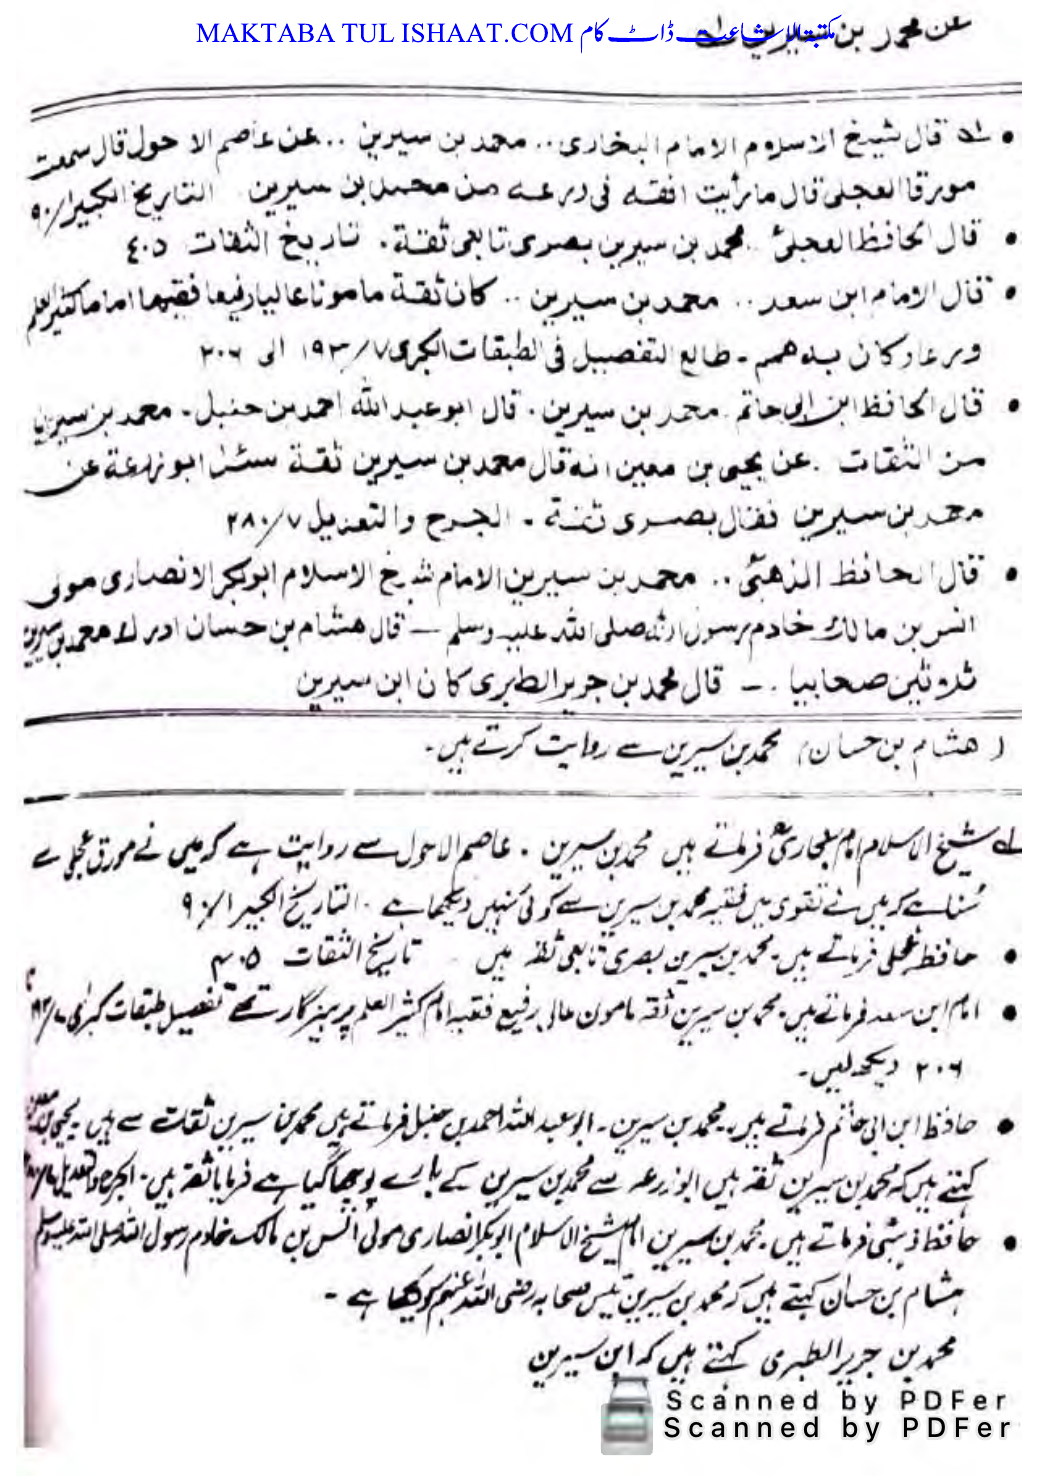 MAKTABA TUL ISHAAT.COM مکتبۃ الاشاعت ڈاٹ کام
عن محمد بن سيرين
• قال شيخ الاسلام الامام البخارى .. محمد بن سيرين .. عن عاصم الاحول قال سمعت
مورقا العجلى قال ما رأيت افقه فى ورعه من محمد بن سيرين التاريخ الكبير ١/٩٠
• قال الحافظ العجلىؒ .. محمد بن سيرين بصرى تابعى ثقة . تاريخ الثقات ٤٠٥
• قال الامام ابن سعد .. محمد بن سيرين .. كان ثقة مامونا عاليا رفيعا فقيها اماما كثير العلم
ورعا وكان به همم ـ طالع التفصيل فى الطبقات الكبرى ٧/١٩٣ الى ٢٠٦
• قال الحافظ ابن ابى حاتم محمد بن سيرين . قال ابو عبد الله احمد بن حنبل ـ محمد بن سيرين
من الثقات . عن يحيى بن معين انه قال محمد بن سيرين ثقة سئل ابو زرعة عن
محمد بن سيرين فقال بصرى ثقة ـ الجرح والتعديل ٧/٢٨٠
• قال الحافظ الذهبىؒ .. محمد بن سيرين الامام شيخ الاسلام ابوبكر الانصارى مولى
انس بن مالك خادم رسول الله صلى الله عليه وسلم — قال هشام بن حسان ادرك محمد بن سيرين
ثلاثين صحابيا . — قال محمد بن جرير الطبرى كان ابن سيرين
(هشام بن حسان) محمد بن سیرین سے روایت کرتے ہیں۔
لے شیخ الاسلام امام بخاریؒ فرماتے ہیں محمد بن سیرین ۔ عاصم الاحول سے روایت ہے کہ میں نے مورق عجلی سے
سُنا ہے کہ میں نے تقوی میں فقیہ محمد بن سیرین سے کوئی نہیں دیکھا ہے ۔ التاریخ الکبیر ۱/۹۰
• حافظ عجلی فرماتے ہیں۔ محمد بن سیرین بصری تابعی ثقہ ہیں تاریخ الثقات ۴۰۵
• امام ابن سعد فرماتے ہیں۔ محمد بن سیرین ثقہ مامون عالی رفیع فقیہ امام کثیر العلم پرہیزگار تھے تفصیل طبقات کبریٰ ۷/۱۹۳ تا
۲۰۶ دیکھ لیں۔
• حافظ ابن ابی حاتم فرماتے ہیں۔ محمد بن سیرین۔ ابو عبد اللہ احمد بن حنبل فرماتے ہیں محمد بن سیرین ثقات سے ہیں۔ یحیی بن معین
کہتے ہیں کہ محمد بن سیرین ثقہ ہیں ابوزرعہ سے محمد بن سیرین کے بارے پوچھا گیا ہے فرمایا ثقہ ہیں۔ الجرح والتعدیل
• حافظ ذہبی فرماتے ہیں۔ محمد بن سیرین امام شیخ الاسلام ابوبکر انصاری مولی انس بن مالک خادم رسول اللہ صلی اللہ علیہ وسلم
ہشام بن حسان کہتے ہیں کہ محمد بن سیرین تیس صحابہ رضی اللہ عنہم کو دیکھا ہے ۔
محمد بن جریر الطبری کہتے ہیں کہ ابن سیرین
Scanned by PDFer
Scanned by PDFer